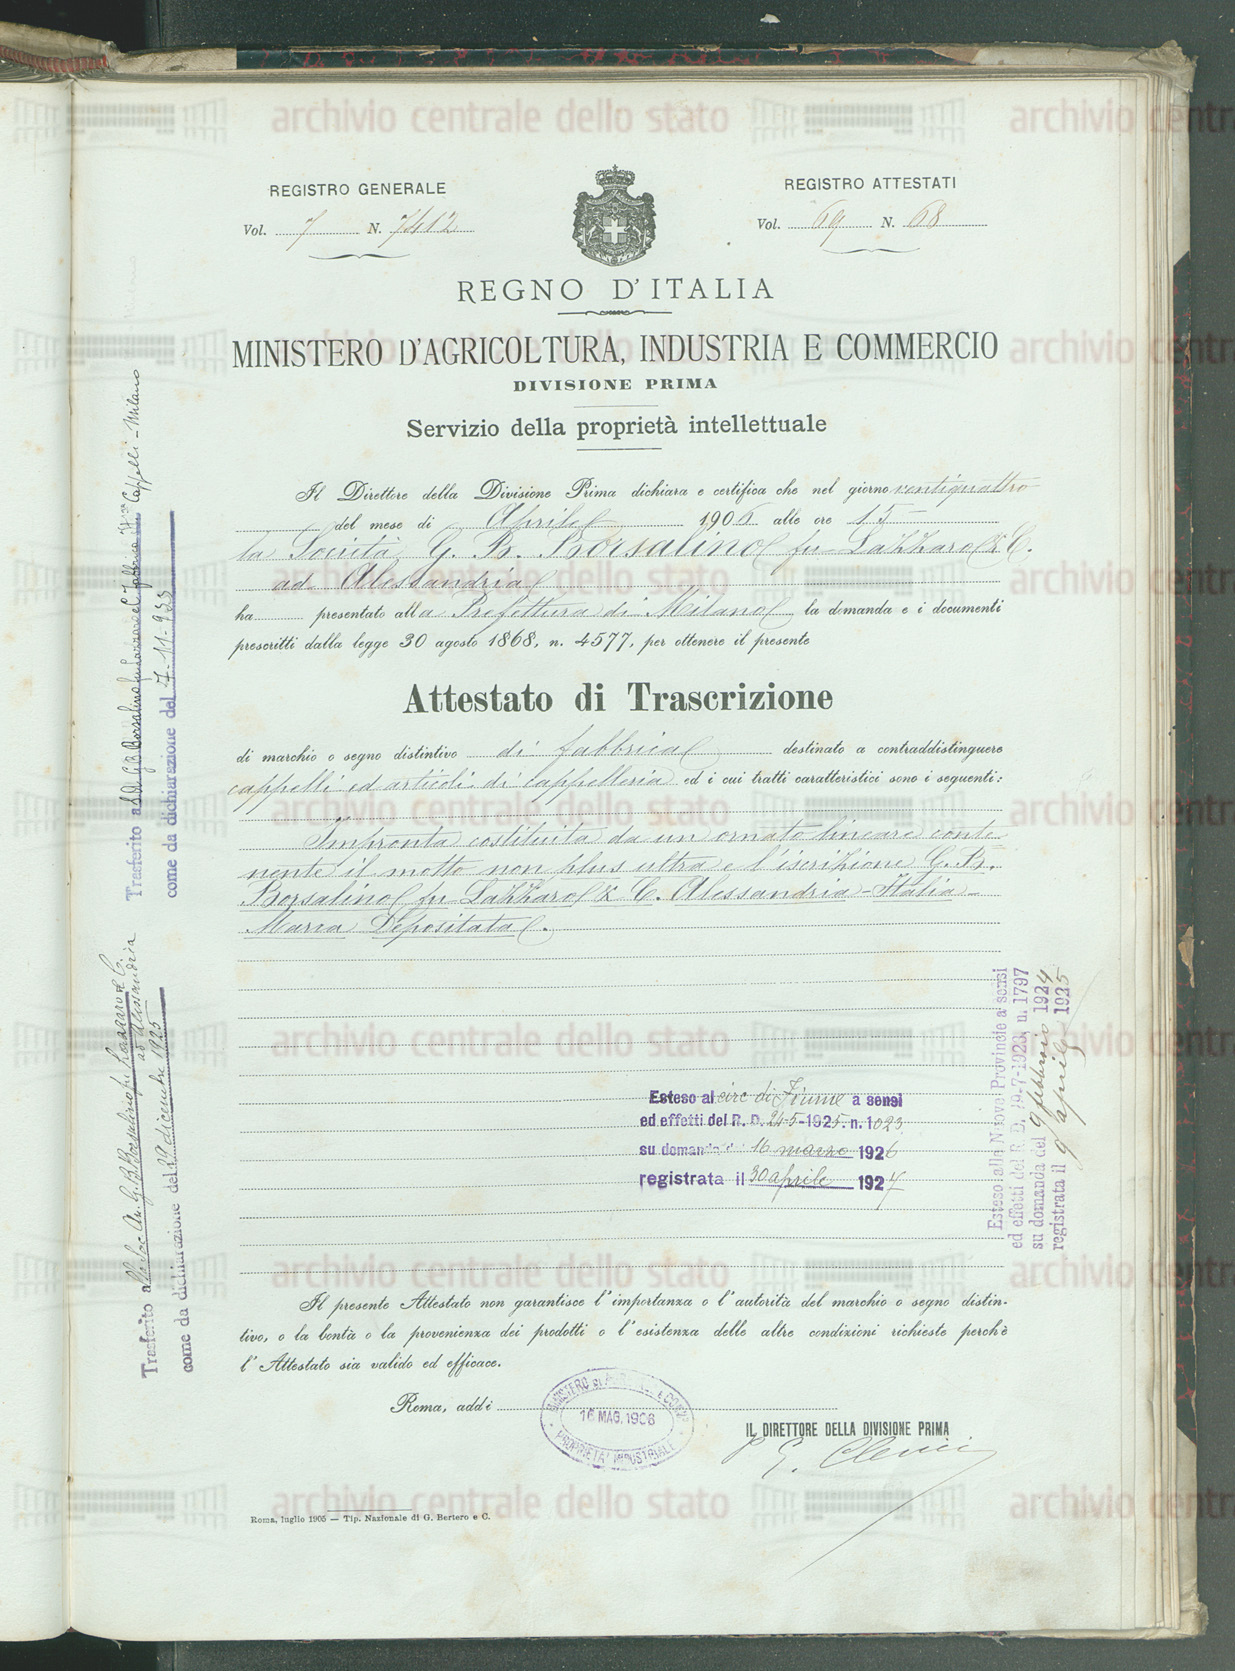 REGISTRO GENERALE
Vol. 7 N. 7412
REGISTRO ATTESTATI
Vol. 69 N. 68
REGNO D'ITALIA
MINISTERO D'AGRICOLTURA, INDUSTRIA E COMMERCIO
DIVISIONE PRIMA
Servizio della proprietà intellettuale
Il Direttore della Divisione Prima dichiara e certifica che nel giorno ventiquattro
del mese di Aprile 1906 alle ore 15
la Società G. B. Borsalino fu Lazzaro & C.
ad Alessandria
ha presentato alla Prefettura di Milano la domanda e i documenti
prescritti dalla legge 30 agosto 1868, n. 4577, per ottenere il presente
Attestato di Trascrizione
di marchio o segno distintivo di fabbrica destinato a contraddistinguere
cappelli ed articoli di cappelleria ed i cui tratti caratteristici sono i seguenti:
Impronta costituita da un ornato lineare conte
nente il motto non plus ultra e l'iscrizione G. B.
Borsalino fu Lazzaro & C. Alessandria - Italia
Marca Depositata.
Esteso al circ di Fiume a sensi
ed effetti del R. D. 24-5-1925. n. 1023
su domanda 16 marzo 1926
registrata il 30 aprile 1927
Il presente Attestato non garantisce l'importanza o l'autorità del marchio o segno distin-
tivo, o la bontà o la provenienza dei prodotti o l'esistenza delle altre condizioni richieste perchè
l'Attestato sia valido ed efficace.
Roma, addì
16 MAG. 1906
PROPRIETA' INDUSTRIALE
IL DIRETTORE DELLA DIVISIONE PRIMA
Roma, luglio 1905 — Tip. Nazionale di G. Bertero e C.
Trasferito alla Soc. An. G. B. Borsalino fu Lazzaro e C.
ad Alessandria
come da dichiarazione del 22 dicembre 1925
Trasferito a S. A. G. B. Borsalino fu Lazzaro e C. Cappelli - Milano
come da dichiarazione del 7-11-935
Esteso alle Nuove Provincie a sensi
ed effetti del R. D. 29-7-1923, n. 1797
su domanda del 9 febbraio 1924
registrata il 9 aprile 1925
archivio centrale dello stato